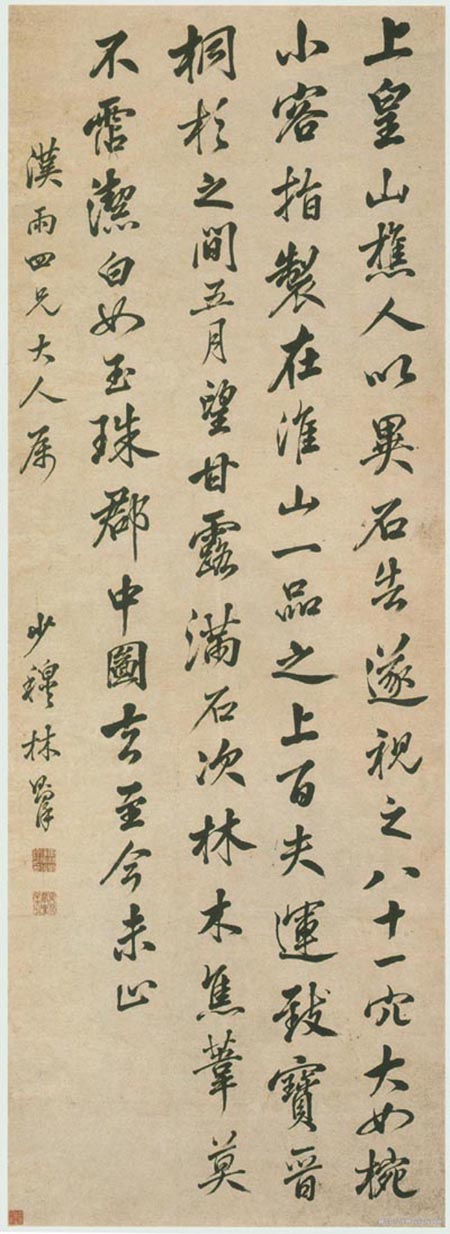 上皇山樵人以異石告遂視之八十一穴大如椀
小容指製在淮山一品之上百夫運致寶晉
桐杉之間五月望甘露滿石次林木焦葦莫
不霑潔白如玉珠郡中圖去至今未止
漢雨四兄大人屬
少穆林則徐